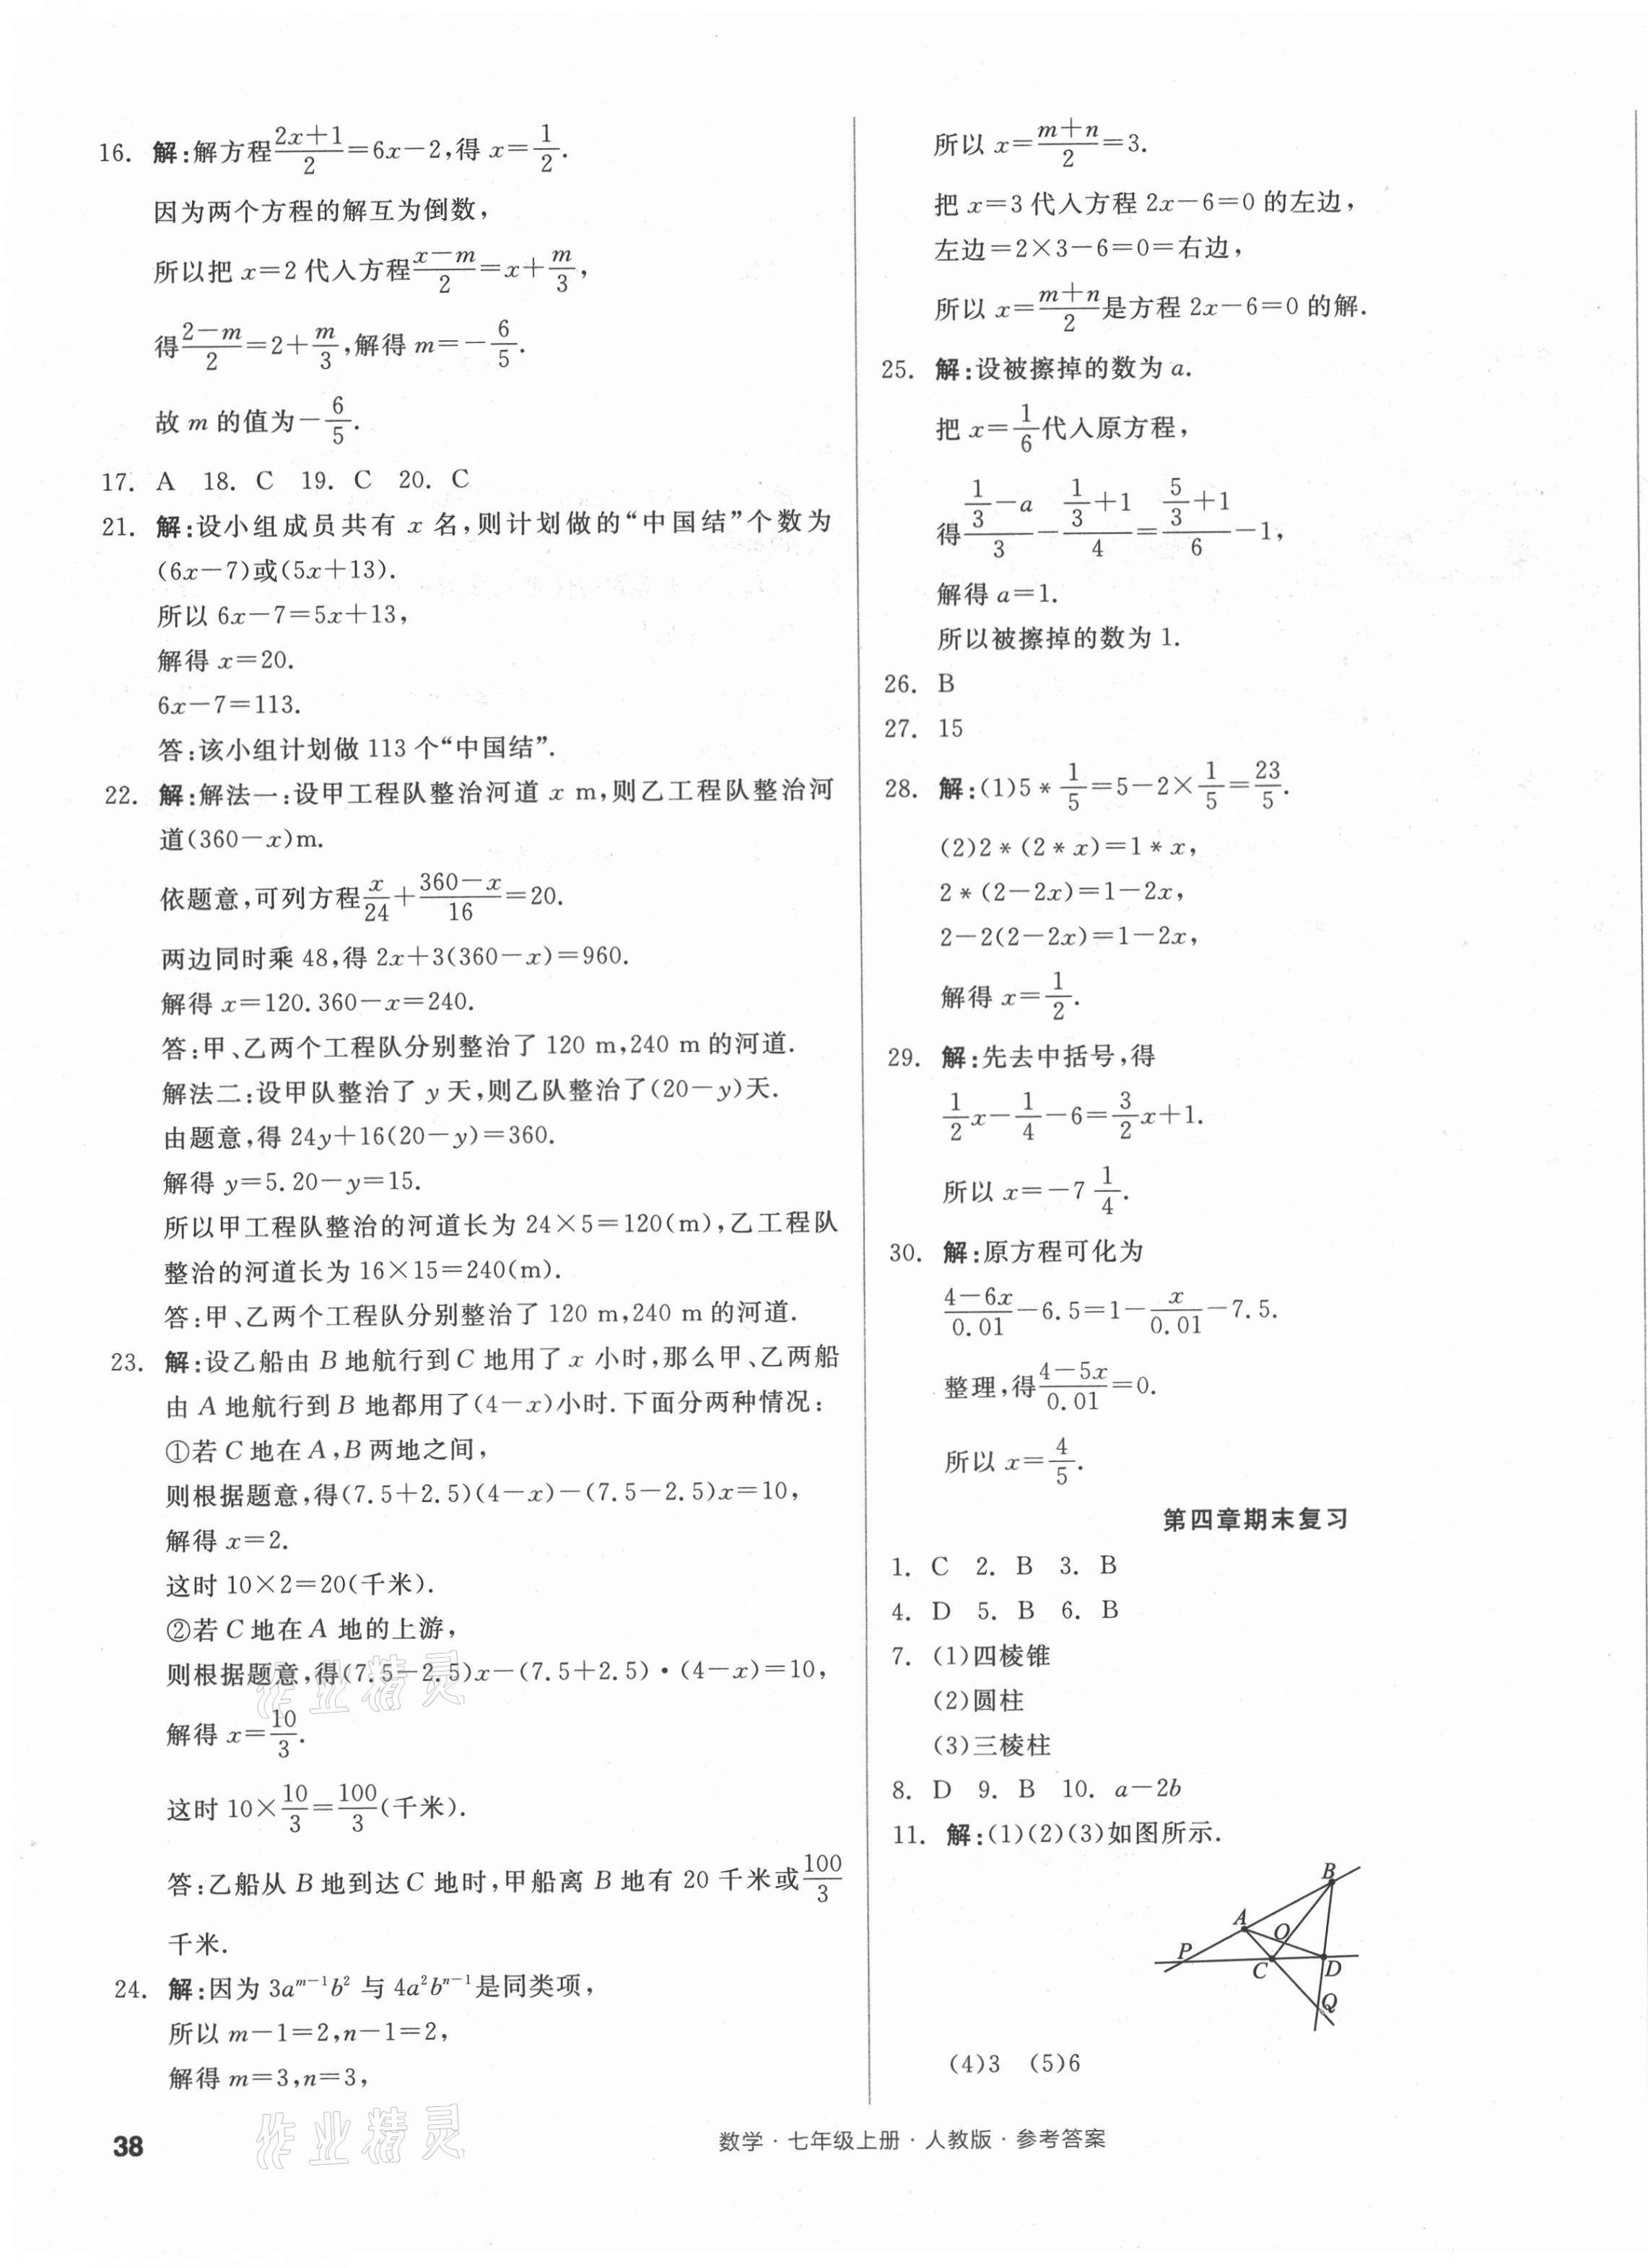 16. 解:解方程(2x+1)/2=6x-2,得 x=1/2.
因为两个方程的解互为倒数,
所以把 x=2 代入方程(x-m)/2=x+m/3,
得(2-m)/2=2+m/3,解得 m=-6/5.
故 m 的值为-6/5.
17. A 18. C 19. C 20. C
21. 解:设小组成员共有 x 名,则计划做的“中国结”个数为
(6x-7)或(5x+13).
所以 6x-7=5x+13,
解得 x=20.
6x-7=113.
答:该小组计划做 113 个“中国结”.
22. 解:解法一:设甲工程队整治河道 x m,则乙工程队整治河
道(360-x)m.
依题意,可列方程x/24+(360-x)/16=20.
两边同时乘 48,得 2x+3(360-x)=960.
解得 x=120.360-x=240.
答:甲、乙两个工程队分别整治了 120 m,240 m 的河道.
解法二:设甲队整治了 y 天,则乙队整治了(20-y)天.
由题意,得 24y+16(20-y)=360.
解得 y=5.20-y=15.
所以甲工程队整治的河道长为 24×5=120(m),乙工程队
整治的河道长为 16×15=240(m).
答:甲、乙两个工程队分别整治了 120 m,240 m 的河道.
23. 解:设乙船由 B 地航行到 C 地用了 x 小时,那么甲、乙两船
由 A 地航行到 B 地都用了(4-x)小时.下面分两种情况:
①若 C 地在 A,B 两地之间,
则根据题意,得(7.5+2.5)(4-x)-(7.5-2.5)x=10,
解得 x=2.
这时 10×2=20(千米).
②若 C 地在 A 地的上游,
则根据题意,得(7.5-2.5)x-(7.5+2.5)·(4-x)=10,
解得 x=10/3.
这时 10×10/3=100/3(千米).
答:乙船从 B 地到达 C 地时,甲船离 B 地有 20 千米或100/3
千米.
24. 解:因为 3a^{m-1}b² 与 4a²b^{n-1}是同类项,
所以 m-1=2,n-1=2,
解得 m=3,n=3,
所以 x=(m+n)/2=3.
把 x=3 代入方程 2x-6=0 的左边,
左边=2×3-6=0=右边,
所以 x=(m+n)/2是方程 2x-6=0 的解.
25. 解:设被擦掉的数为 a.
把 x=1/6代入原方程,
得(1/3-a)/3-(1/3+1)/4=(5/3+1)/6-1,
解得 a=1.
所以被擦掉的数为 1.
26. B
27. 15
28. 解:(1)5*1/5=5-2×1/5=23/5.
(2)2*(2*x)=1*x,
2*(2-2x)=1-2x,
2-2(2-2x)=1-2x,
解得 x=1/2.
29. 解:先去中括号,得
1/2x-1/4-6=3/2x+1.
所以 x=-7 1/4.
30. 解:原方程可化为
(4-6x)/0.01-6.5=1-x/0.01-7.5.
整理,得(4-5x)/0.01=0.
所以 x=4/5.
第四章期末复习
1. C 2. B 3. B
4. D 5. B 6. B
7. (1)四棱锥
(2)圆柱
(3)三棱柱
8. D 9. B 10. a-2b
11. 解:(1)(2)(3)如图所示.
B
A
O
P
C
D
Q
(4)3 (5)6
作业精灵
作业精灵
38
数学·七年级上册·人教版·参考答案